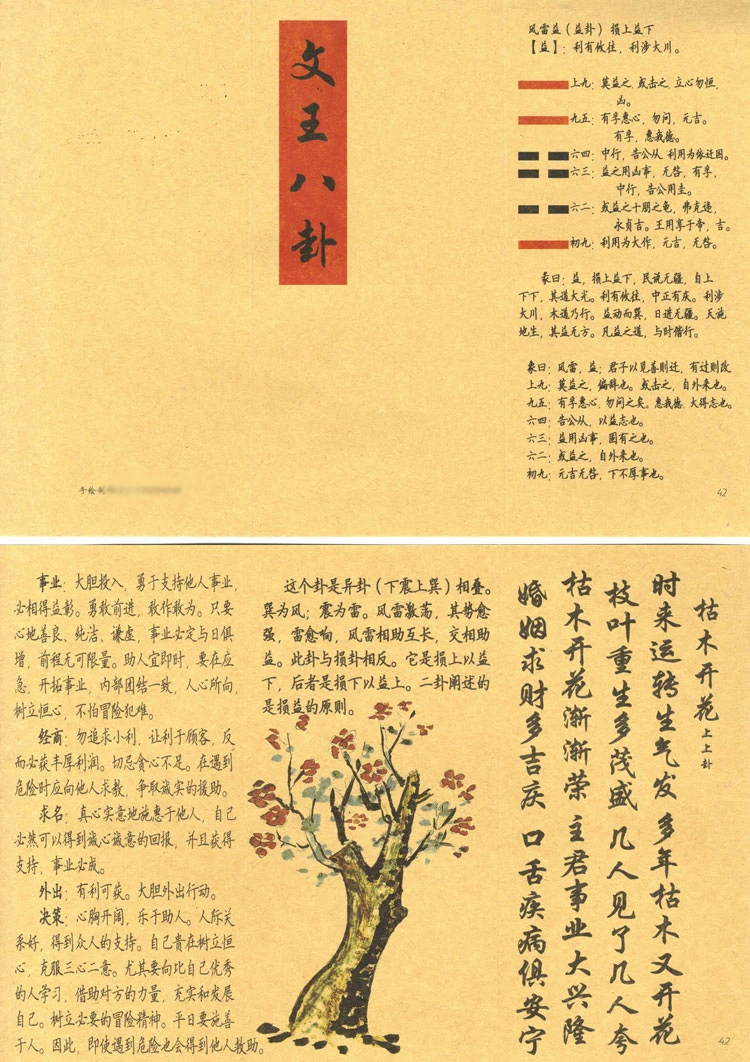 文王八卦
手绘制
风雷益（益卦）损上益下
【益】：利有攸往，利涉大川。
上九：莫益之，或击之，立心勿恒，
凶。
九五：有孚惠心，勿问，元吉。
有孚，惠我德。
六四：中行，告公从，利用为依迁国。
六三：益之用凶事，无咎，有孚，
中行，告公用圭。
六二：或益之十朋之龟，弗克违，
永贞吉。王用享于帝，吉。
初九：利用为大作，元吉，无咎。
彖曰：益，损上益下，民说无疆，自上
下下，其道大光。利有攸往，中正有庆。利涉
大川，木道乃行。益动而巽，日进无疆。天施
地生，其益无方。凡益之道，与时偕行。
象曰：风雷，益；君子以见善则迁，有过则改
上九：莫益之，偏辞也。或击之，自外来也。
九五：有孚惠心，勿问之矣。惠我德，大得志也。
六四：告公从，以益志也。
六三：益用凶事，固有之也。
六二：或益之，自外来也。
初九：元吉无咎，下不厚事也。
42
枯木开花 上上卦
时来运转生气发 多年枯木又开花
枝叶重生多茂盛 几人见了几人夸
枯木开花渐渐荣 主君事业大兴隆
婚姻求财多吉庆 口舌疾病俱安宁
这个卦是异卦（下震上巽）相叠。
巽为风；震为雷。风雷激荡，其势愈
强，雷愈响，风雷相助互长，交相助
益。此卦与损卦相反。它是损上以益
下，后者是损下以益上。二卦阐述的
是损益的原则。
事业：大胆投入，勇于支持他人事业，
必相得益彰。勇敢前进，敢作敢为。只要
心地善良、纯洁、谦虚，事业必定与日俱
增，前程无可限量。助人宜即时，要在应
急，开拓事业，内部团结一致，人心所向，
树立恒心，不怕冒险犯难。
经商：勿追求小利，让利于顾客，反
而必获丰厚利润。切忌贪心不足。在遇到
危险时应向他人求教，争取诚实的援助。
求名：真心实意地施惠于他人，自己
必然可以得到诚心诚意的回报，并且获得
支持，事业必成。
外出：有利可获。大胆外出行动。
决策：心胸开阔，乐于助人。人际关
系好，得到众人的支持。自己贵在树立恒
心，克服三心二意。尤其要向比自己优秀
的人学习，借助对方的力量，充实和发展
自己。树立必要的冒险精神。平日要施善
于人。因此，即使遇到危险也会得到他人救助。
42